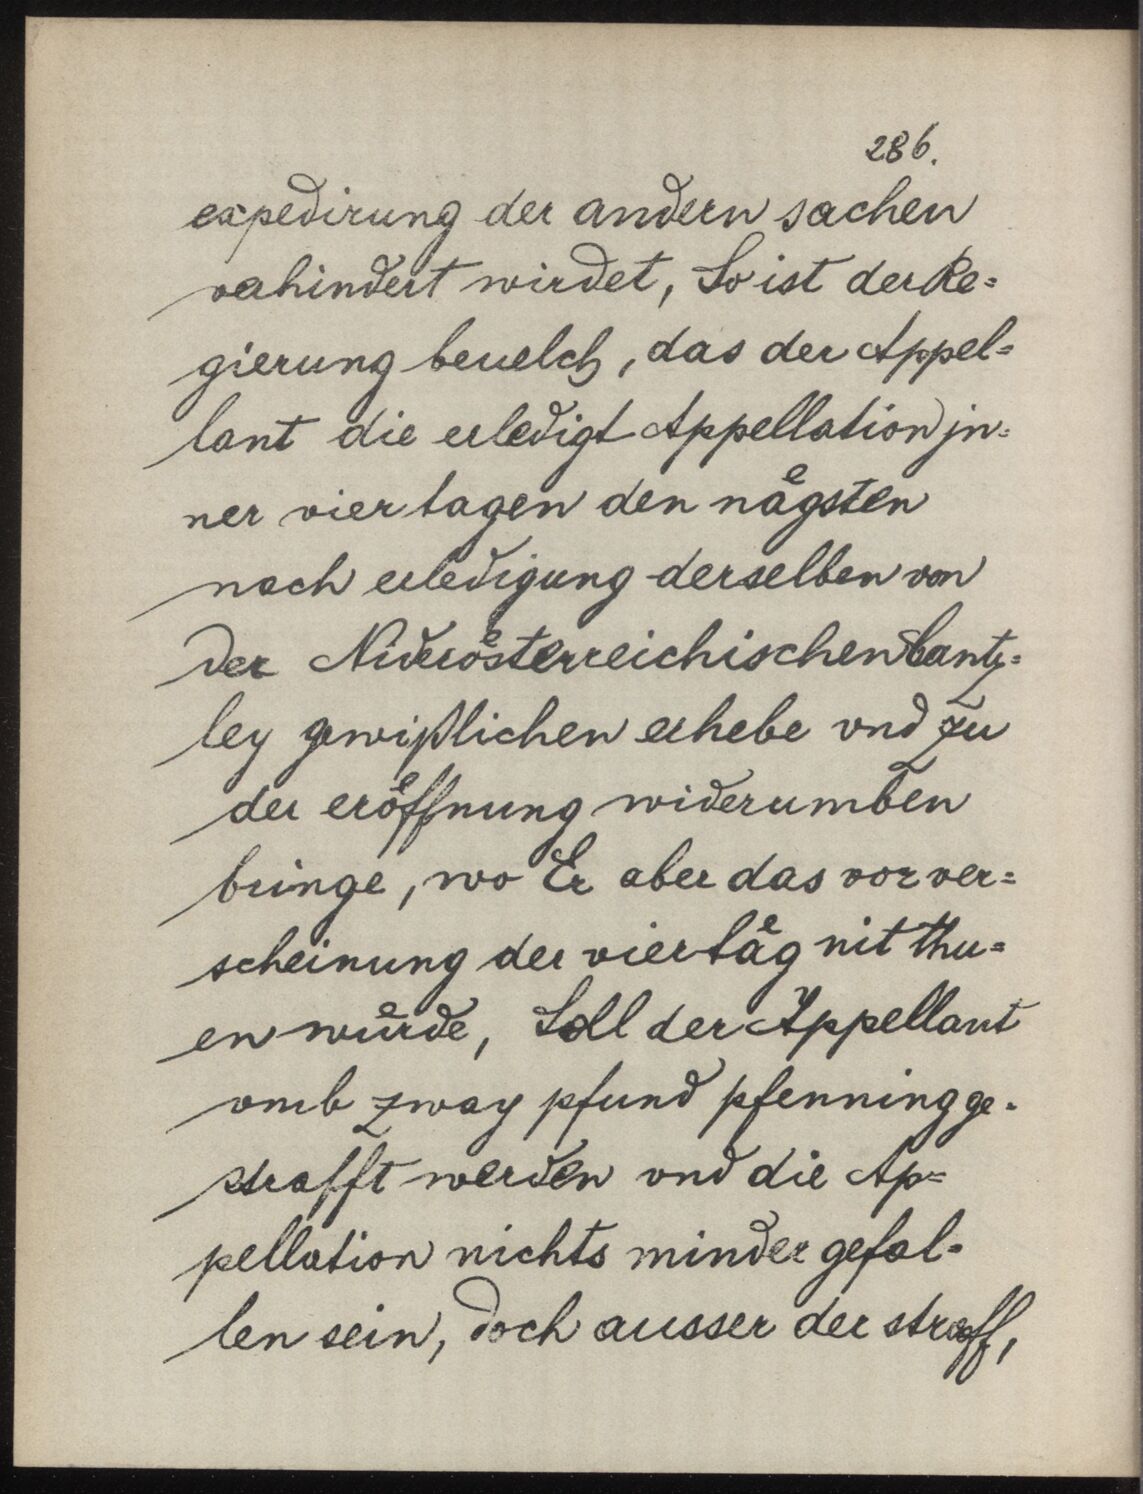 286.
expedirung der andern sachen
verhindert wirdet, So ist der Re=
gierung beuelch, das der Appel=
lant die erledigt Appellation jn=
ner vier tagen den nägsten
nach erledigung derselben von
der Niderösterreichischen Cantz=
ley gewißlichen erhebe vnd zu
der eröffnung widerumben
bringe, wo Er aber das vor ver=
scheinung der vier täg nit thu=
en würde, Soll der Appellant
vmb zway pfund pfenning ge=
strafft werden vnd die Ap=
pellation nichts minder gefal=
len sein, doch ausser der straff,